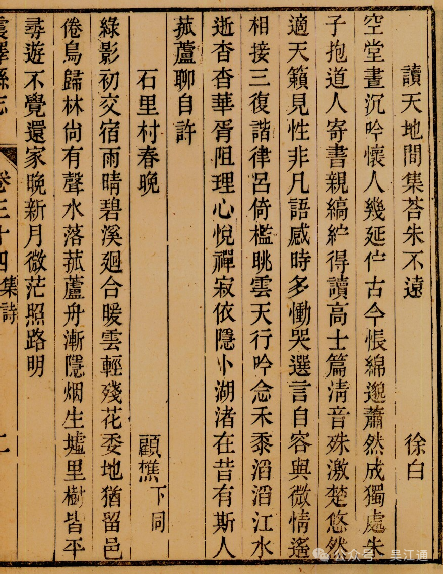 讀天地間集荅朱不遠 徐白
空堂晝沉吟懷人幾延伫古今悵綿邈蕭然成獨處朱
子抱道人寄書親縞紵得讀高士篇淸音殊激楚悠然
適天籟見性非凡語感時多慟哭選言自容與微情遙
相接三復諧律呂倚檻眺雲天行吟念禾黍滔滔江水
逝杳杳華胥阻理心悅禪寂依隱小湖渚在昔有斯人
菰蘆聊自許
石里村春晚 顧樵下同
綠影初交宿雨晴碧溪廻合暖雲輕殘花委地猶留邑
倦鳥歸林尙有聲水落菰蘆舟漸隱烟生墟里樹皆平
尋遊不覺還家晚新月微茫照路明
震澤縣志 卷三十四 集詩
公众号 吴江通